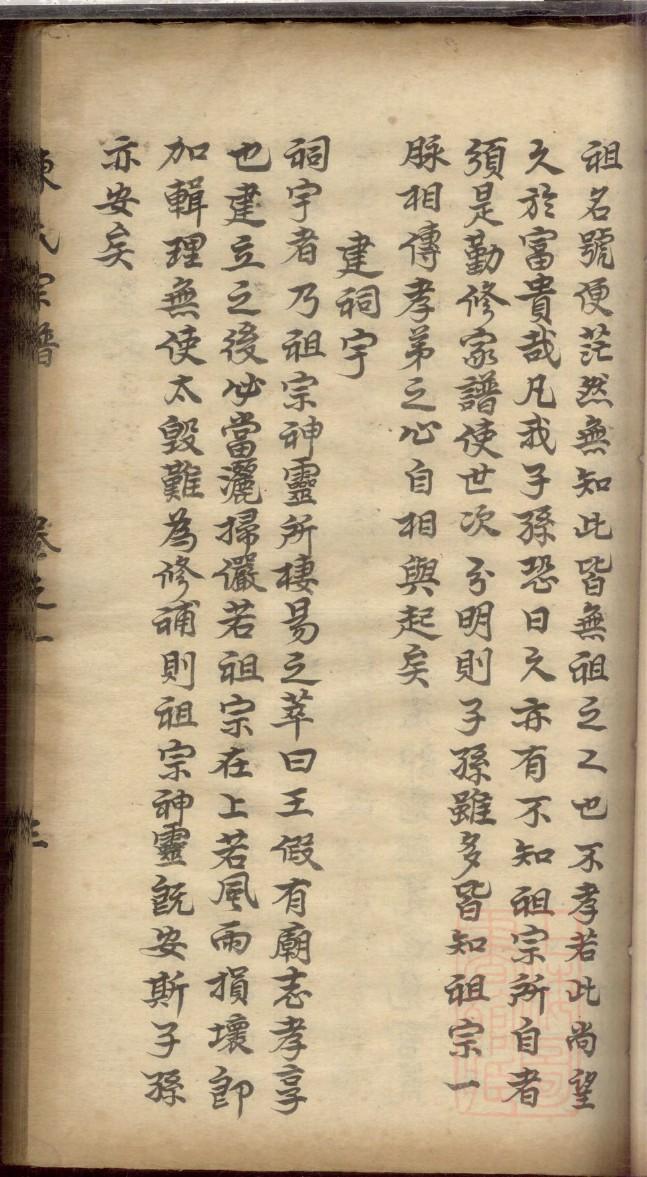 祖名號便茫然無知此皆無祖之乙也不孝若此尚望
久於富貴哉凡我子孫恐日久亦有不知祖宗所自者
須是勤修家譜使世次分明則子孫雖多皆知祖宗一
脉相傳孝弟之心自相與起矣
建祠宇
祠宇者乃祖宗神靈所棲易之萃曰王假有廟志孝享
也建立之後必當灑掃儼若祖宗在上若風雨損壞即
加輯理無使太毀難為修補則祖宗神靈既安斯子孫
亦安矣
陳氏宗譜 卷之一 三